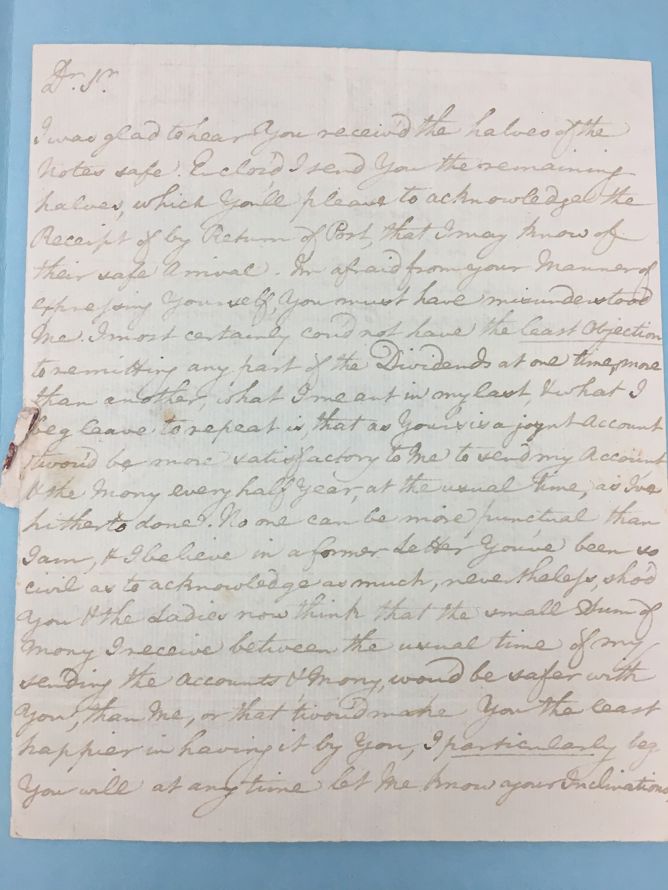 Dr. Sr.
I was glad to hear You receiv'd the halves of the
Notes safe. Enclos'd I send You the remaining
halves, which You'll please to acknowledge the
Receipt of by Return of Post, that I may know of
their safe Arrival. I'm afraid from your Manner of
expressing Yourself, You must have misunderstood
Me. I most certainly cou'd not have the least Objection
to remitting any part of the Dividends at one time, more
than another, what I meant in my last, & what I
beg leave to repeat is, that as Yours is a joynt Account
twou'd be more satisfactory to Me to send my Account
& the Mony every half Year, at the usual Time, as I've
hitherto done. No one can be more punctual than
I am, & I believe in a former Letter You've been so
civil as to acknowledge as much, nevertheless, shou'd
You & the Ladies now think that the small Sum of
Mony I receive between the usual time of my
sending the Accounts & Mony, wou'd be safer with
You, than Me, or that 'twou'd make You the least
happier in having it by You, I particularly beg
You will at any time let Me know your Inclinations